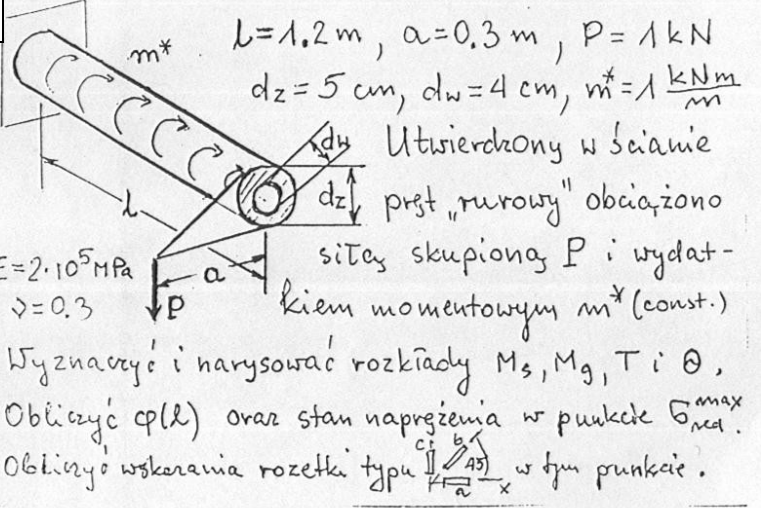 m*
l=1.2 m, a=0.3 m, P=1 kN
dz=5 cm, dw=4 cm, m*=1 kNm/m
dw
dz
l
a
P
Utwierdzony w ścianie
pręt „rurowy" obciążono
siłą skupioną P i wydat-
kiem momentowym m* (const.)
E=2·10⁵MPa
ν=0.3
Wyznaczyć i narysować rozkłady Ms, Mg, T i Θ.
Obliczyć φ(l) oraz stan naprężenia w punkcie σ red. max
Obliczyć wskazania rozetki typu c b 45 a x w tym punkcie.